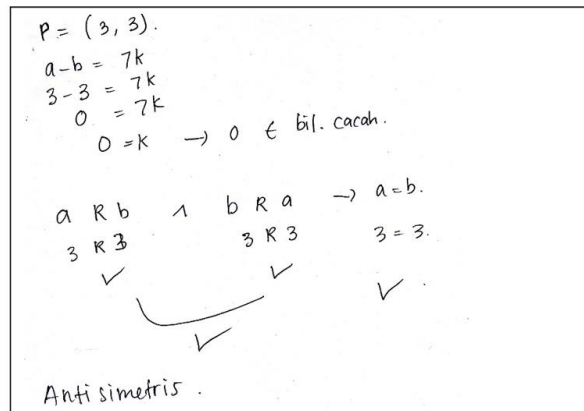 P = (3, 3).
a-b = 7k
3-3 = 7k
0 = 7k
0 = k → 0 ∈ bil. cacah.
a R b ∧ b R a → a=b.
3 R 3 3 R 3 3 = 3.
✓ ✓ ✓ .
✓
Anti simetris .